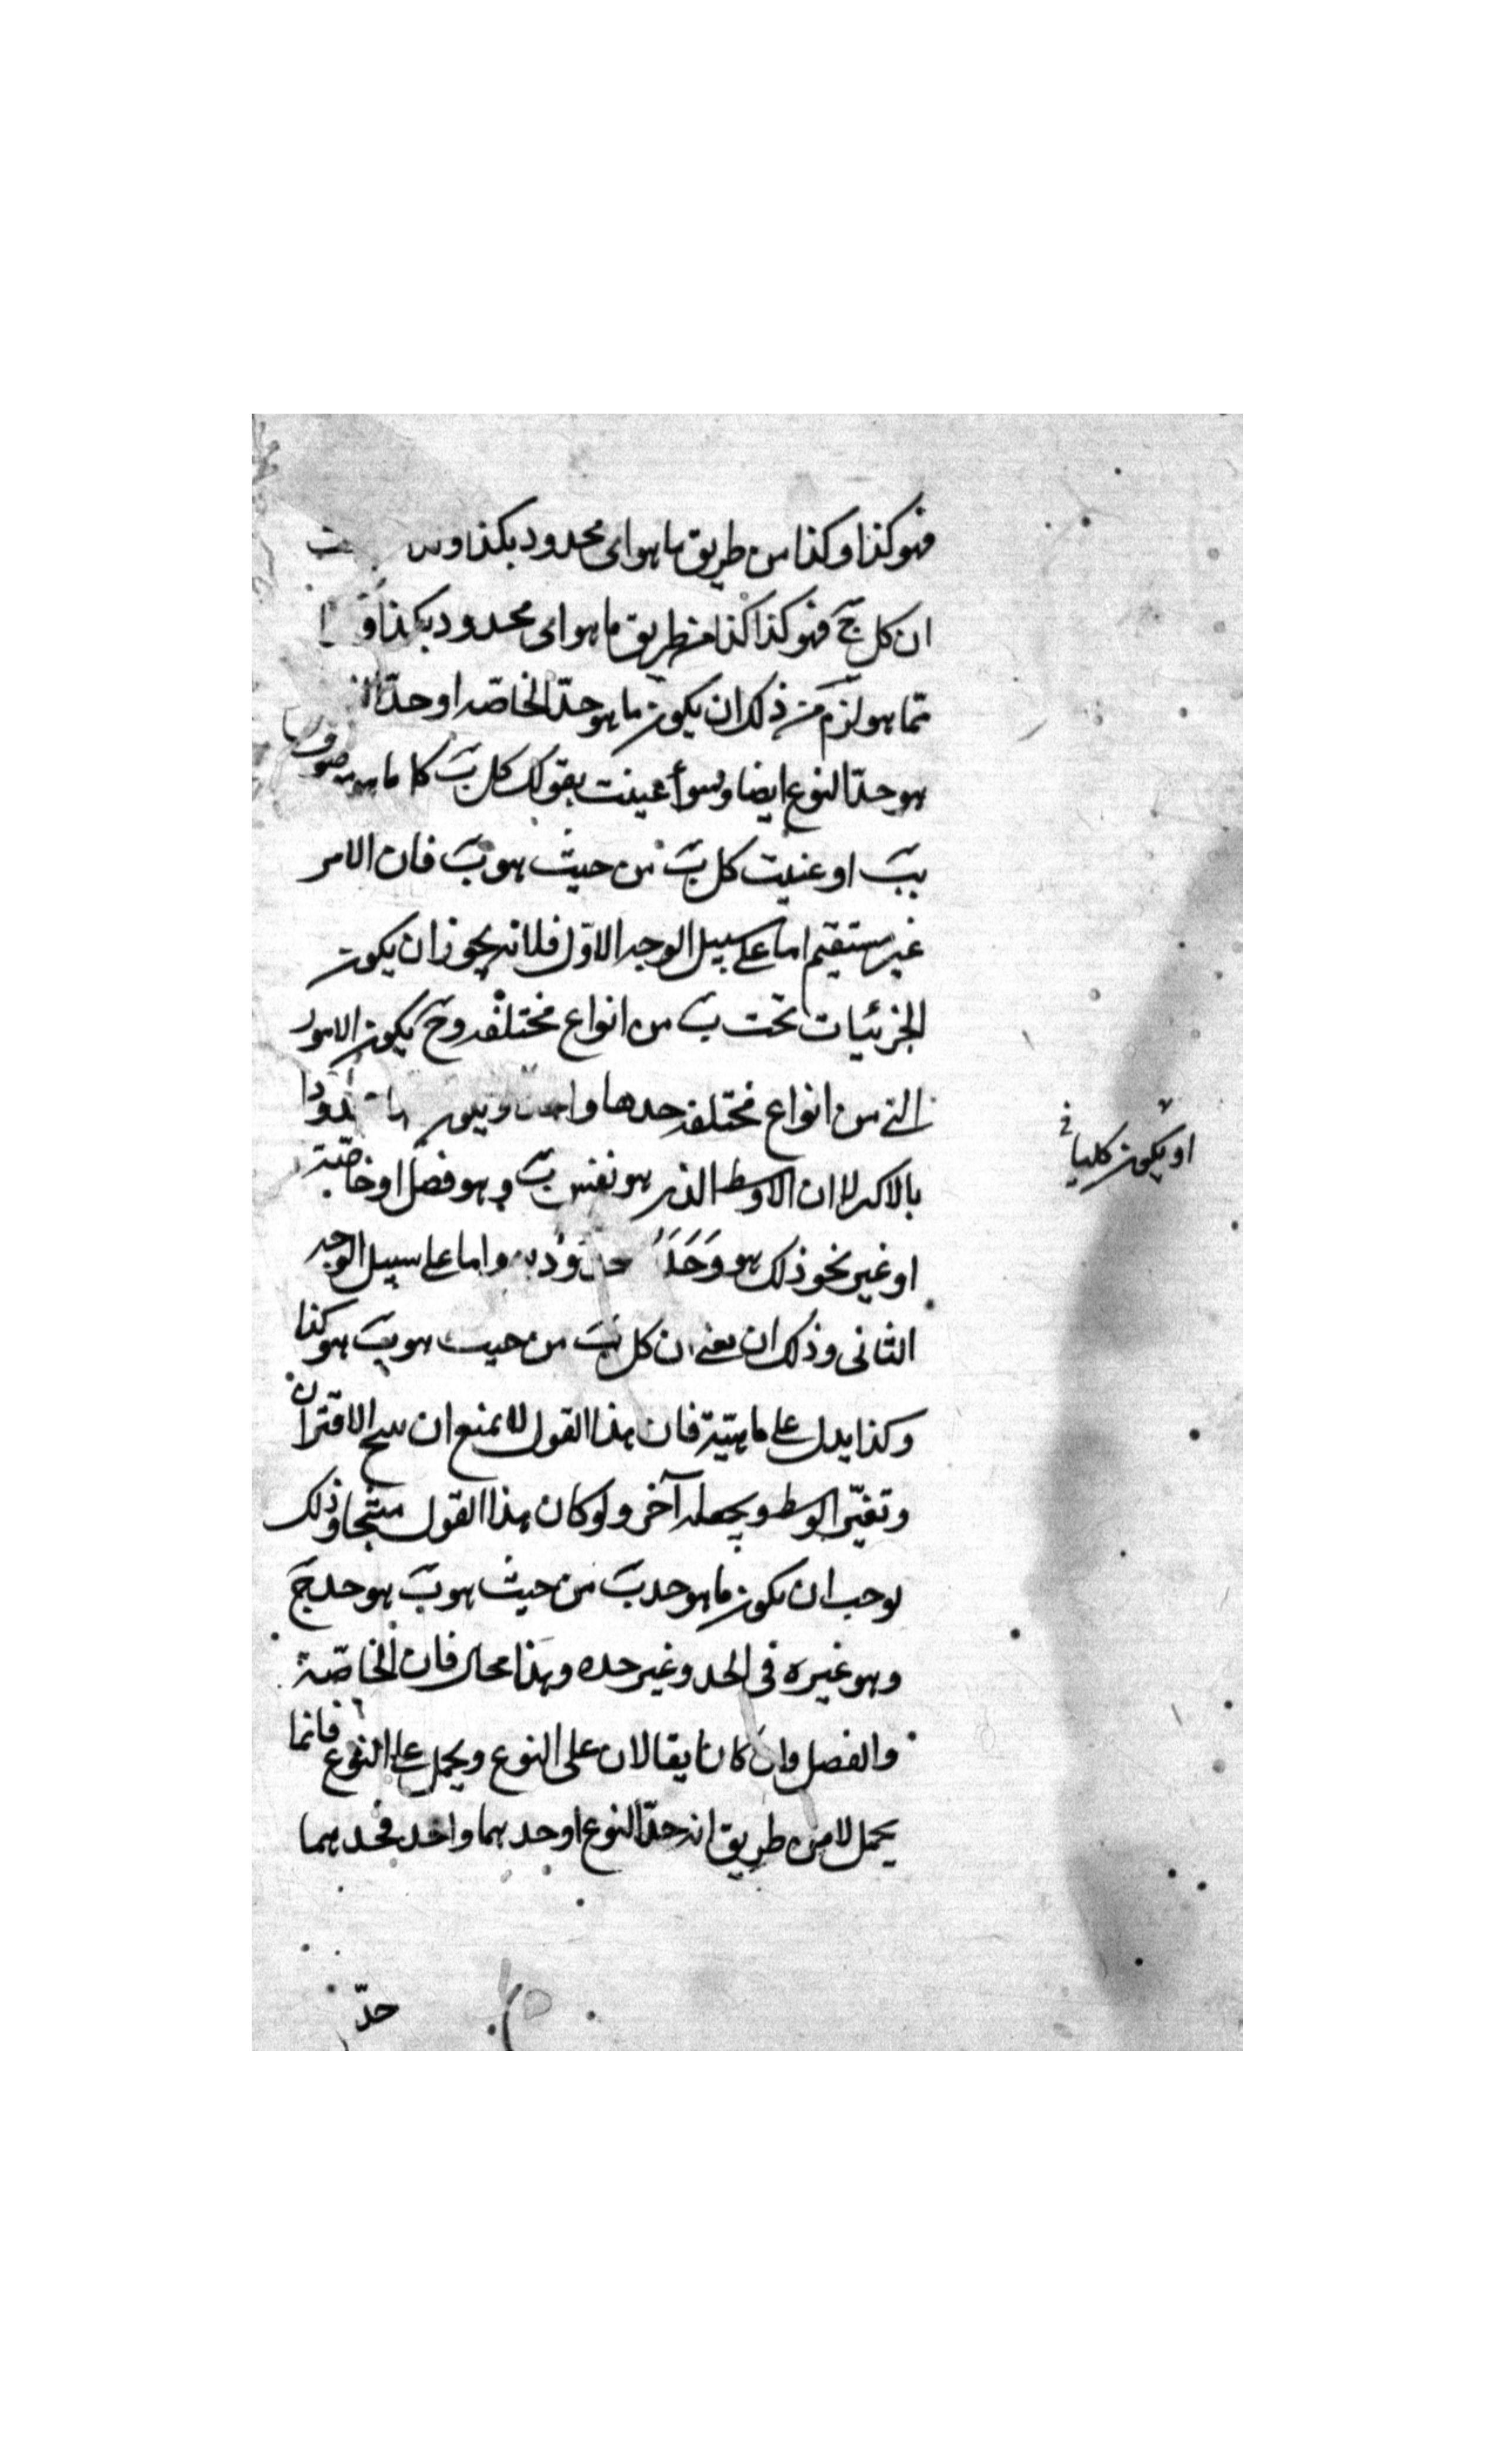 فهو كذا وكذا من طريق ما هو اى محدود بكذا
ان كل ج فهو كذا كذا من طريق ما هو اى محدود بكذا
مما هو لزم من ذلك ان يكون ما هو حدّ الخاصّه او حدّ
هو حدّ النوع ايضا وسوأ عنيت بقولك كل ب كل ما هو موصوف
ببَ او عنيت كل بَ من حيث هو بَ فان الامر
غير مستقيم اما على سبيل الوجه الاوّل فلانه يجوز ان يكون
الجزئيات تحت بَ من انواع مختلفه وح يكون الامور
التى من انواع مختلفه حدها
او يكون كليا
بالاكبر لا ان الاوسط الذى هو نفس بَ وهو فصل او خاصّية
او غير نحو ذلك هو واما على سبيل الوجه
الثانى وذلك ان يعنى ان كل بَ من حيث هو بَ هو كذا
وكذا يدل على ماهيّته فان هذا القول لا يمنع ان ينتج الاقتران
وتغيّر الوسط ويجعله آخر ولو كان هذا القول منتجا وذلك
لوجب ان يكون ما هو حد بَ من حيث هو بَ هو حد جَ
وهو غيره فى الحد وغير حده وهذا محال فان الخاصّة
والفصل وان كانا يقالان على النوع ويحمل على النوع فانما
يحمل لا من طريق انه حدّ النوع او حدهما واحد فحدهما
حدّ